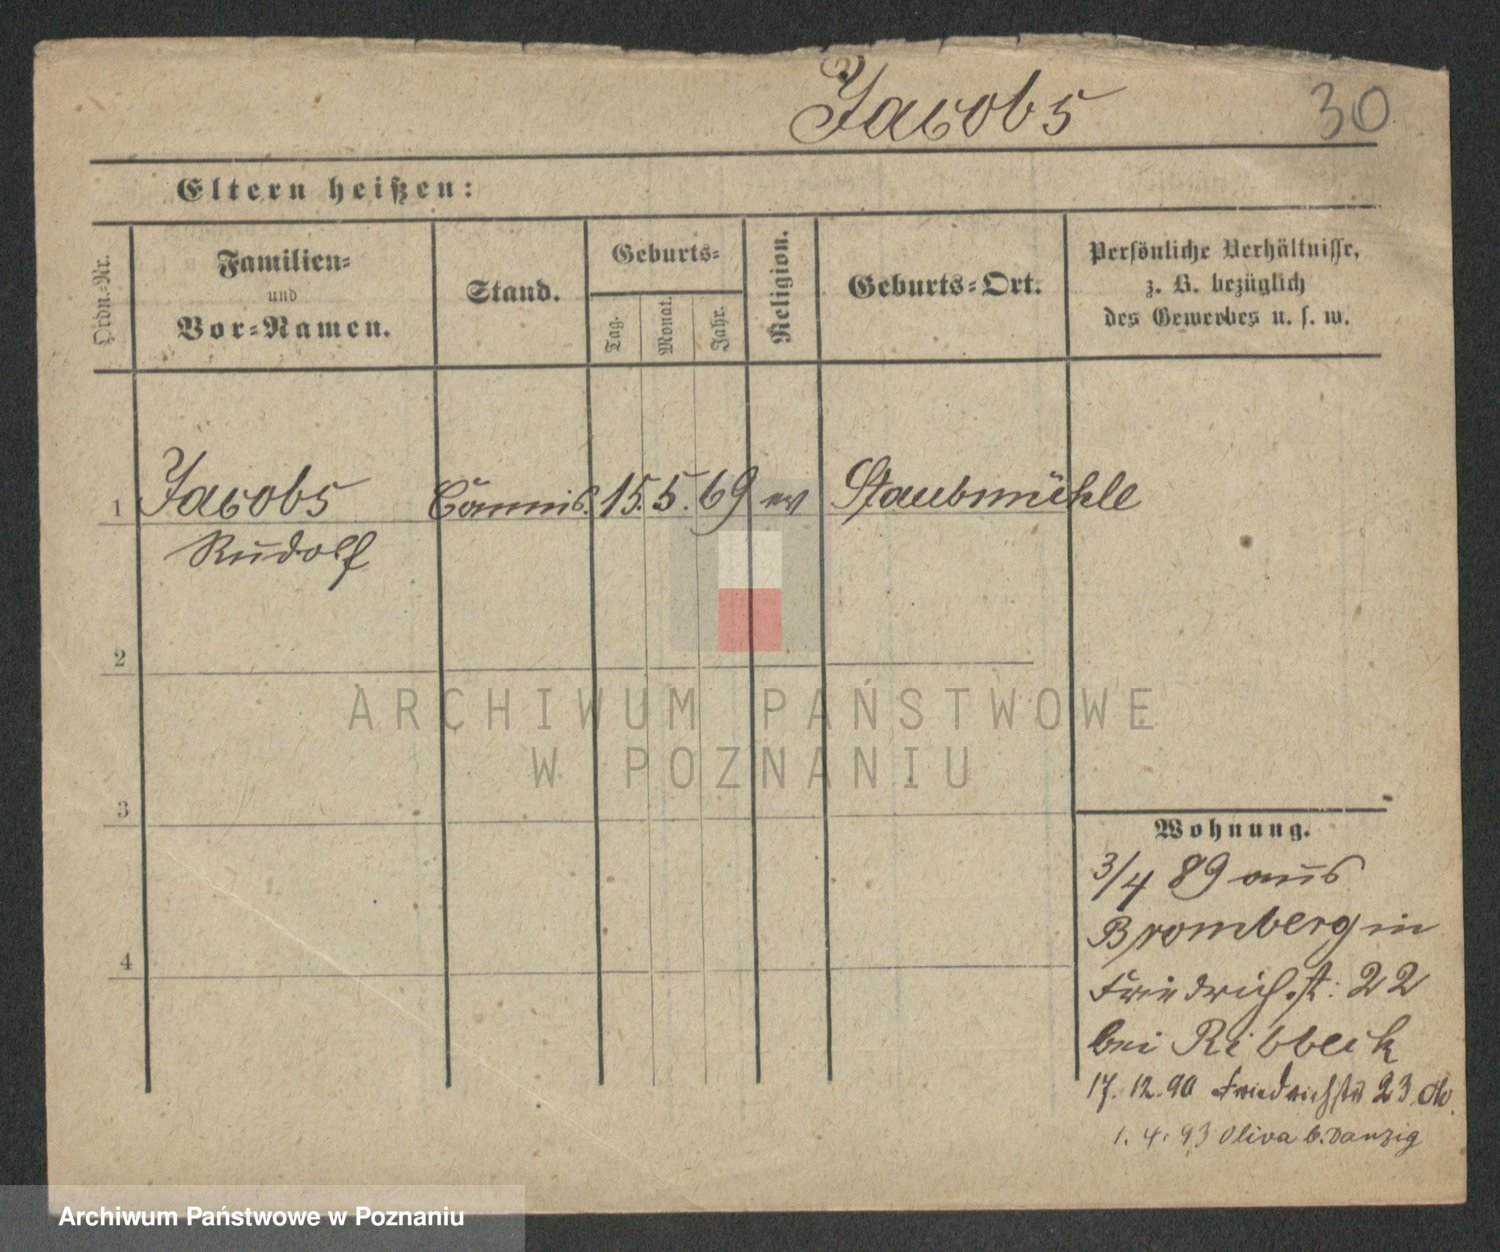 Jacobs 30
Eltern heißen:
Ordn.-Nr.
Familien-
und
Vor-Namen.
Stand.
Geburts-
Tag.
Monat.
Jahr.
Religion.
Geburts-Ort.
Persönliche Verhältnisse,
z. B. bezüglich
des Gewerbes u. s. w.
1 Jacobs Commis. 15. 5. 69 ev Staubmühle
Rudolf
2
3
4
ARCHIWUM PAŃSTWOWE
W POZNANIU
Wohnung.
3/4 89 aus
Bromberg in
Friedrichst: 22
bei Ribbeck
17. 12. 90 Friedrichstr 23
1. 4. 93 Oliva b. Danzig
Archiwum Państwowe w Poznaniu